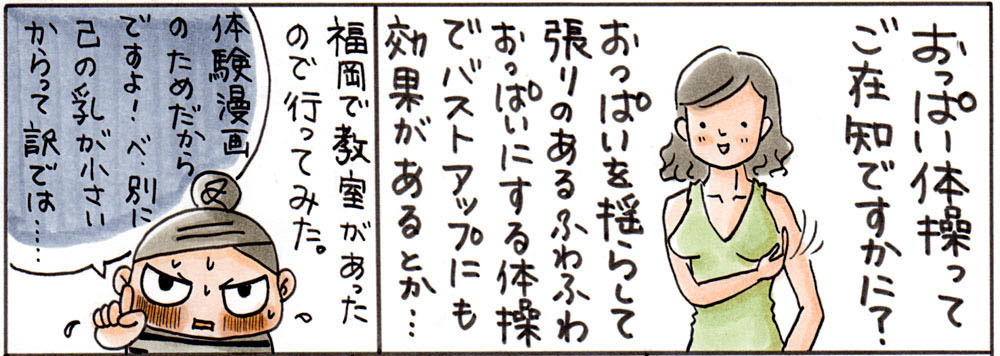 おっぱい体操って
ご在知ですかに?
おっぱいを揺らして
張りのあるふわふわ
おっぱいにする体操
でバストアップにも
効果があるとか…
福岡で教室があった
ので行ってみた。
体験漫画
のためだから
ですよ!べ、別に
己の乳が小さい
からって訳では……